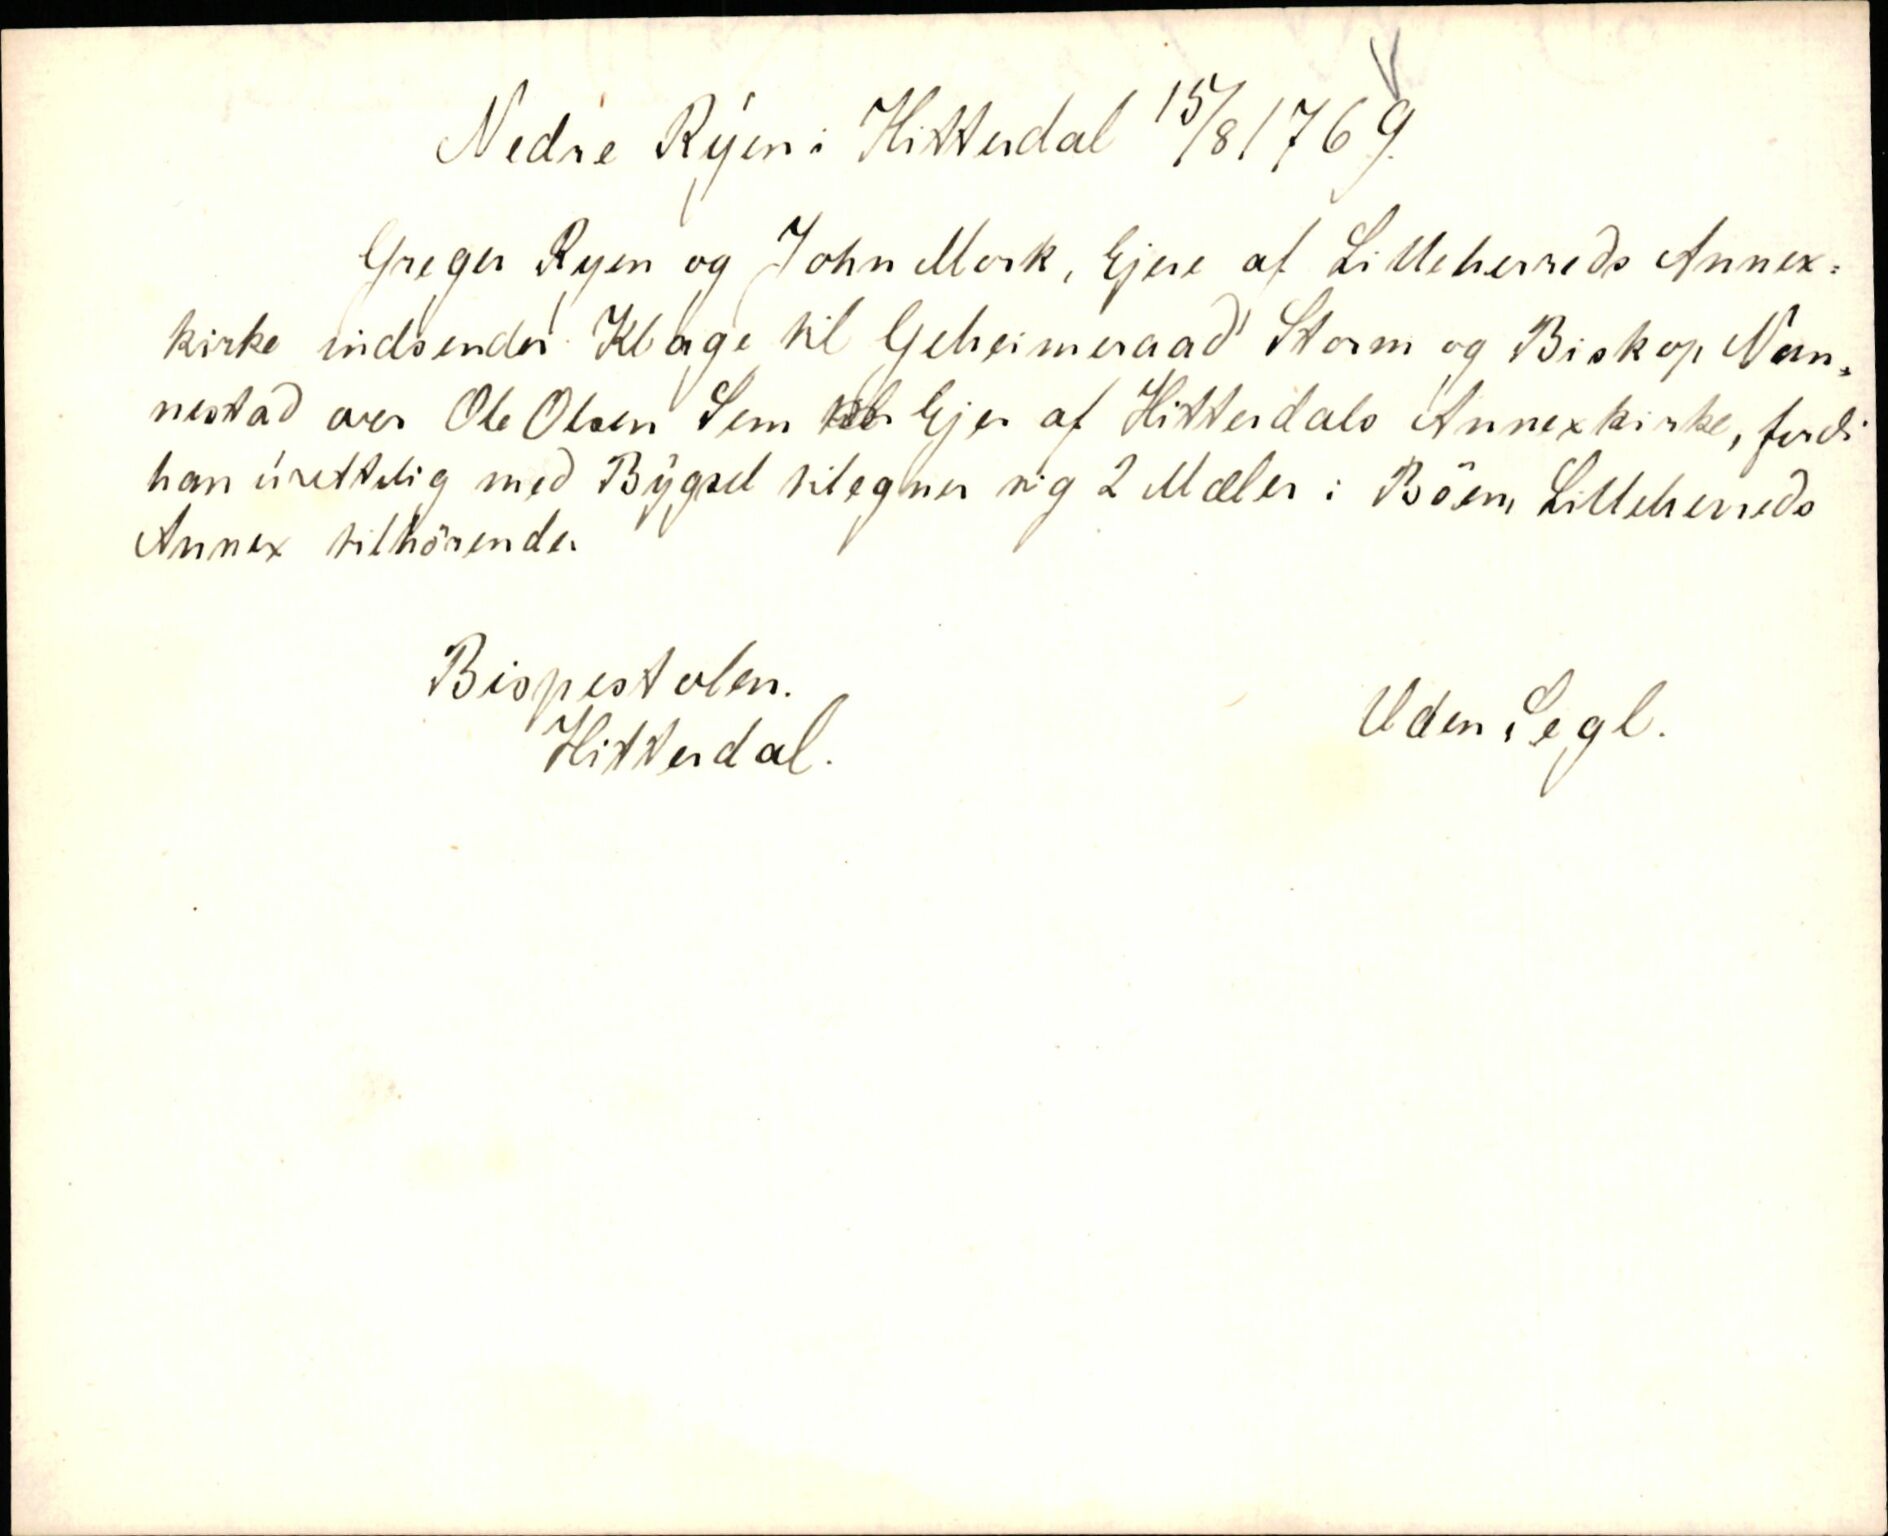 Nedre Ryen i Hitterdal 15/8 1769.
Greger Ryen og John Mork, Ejere af Lilleherreds Annex-
kirke indsender Klage til Geheimeraad Storm og Biskop Nan-
nestad over Ole Olsen Sem Ejer af Hitterdals Annexkirke, fordi
han urettelig med Bygsel tilegner sig 2 Mæler i Böen, Lilleherreds
Annex tilhörende.
Bispestolen.
Hitterdal.
Uden Segl.